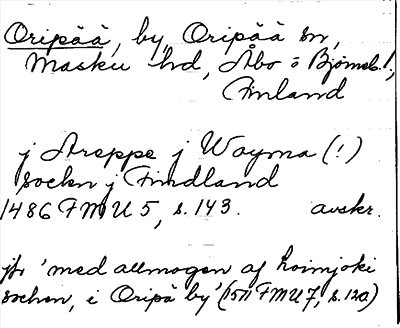 Oripää, by, Oripää sn,
Masku hd, Åbo o Björneb. l.,
Finland
j Areppe j Woyma (!)
sockn j Findland
1486 FMU 5, s. 143. avskr.
jfr 'med allmogen af Loimjoki
sochen, i Oripä by' (1511 FMU 7, s. 120)